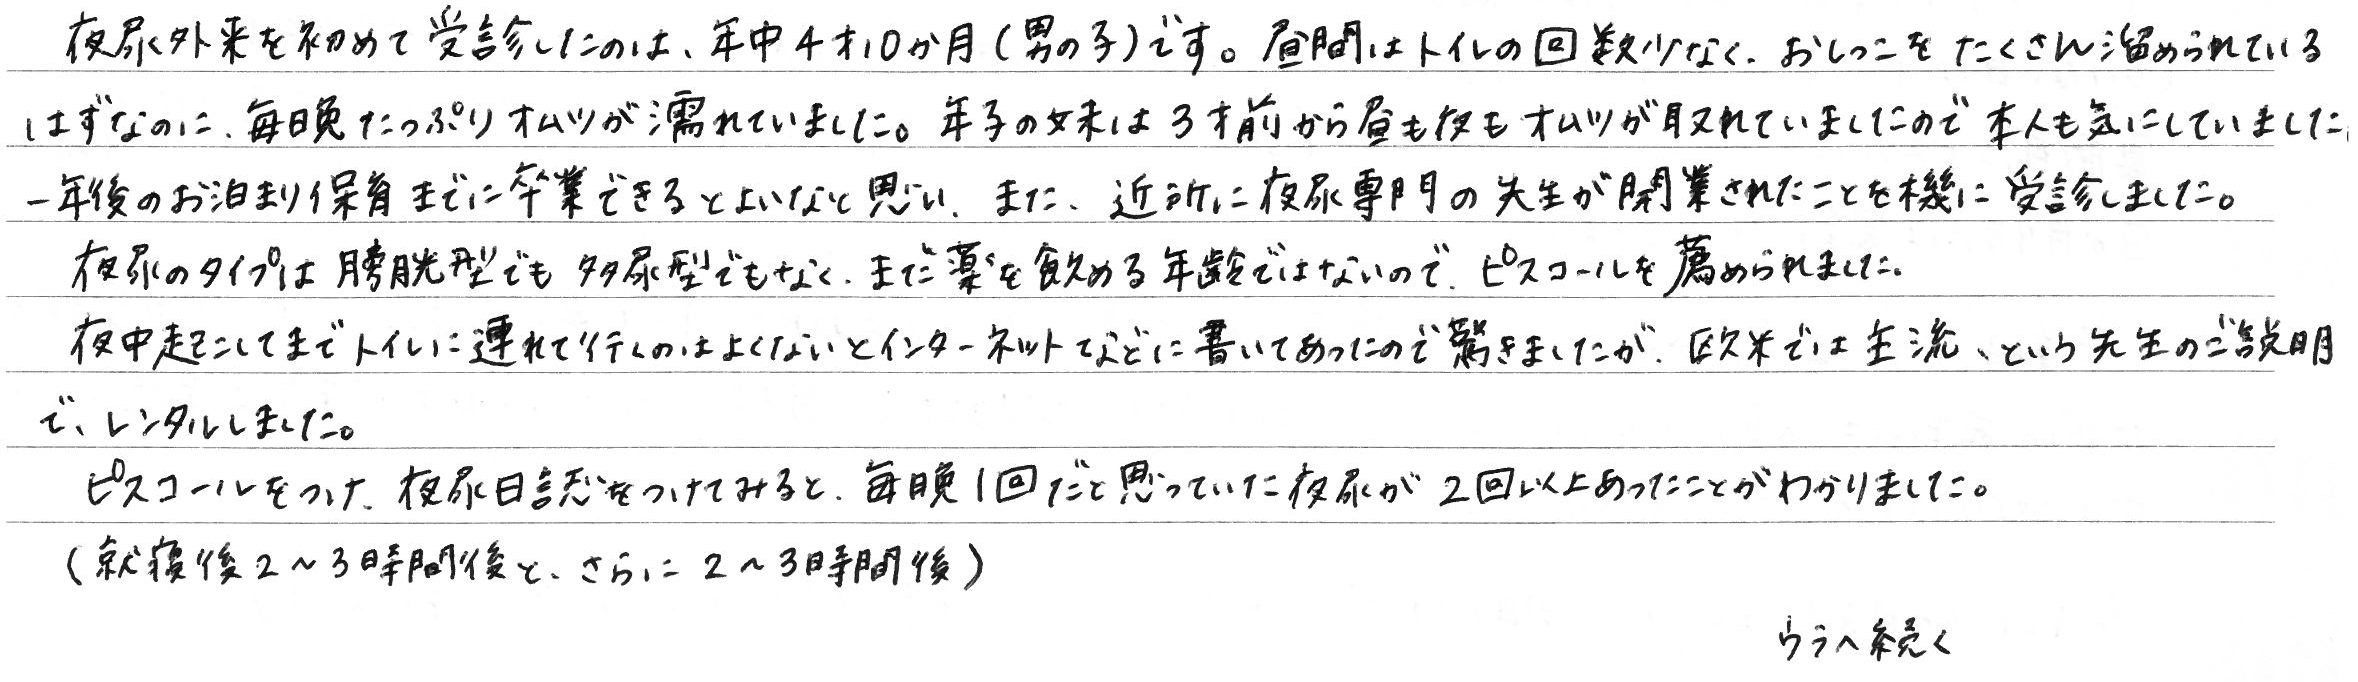 夜尿外来を初めて受診したのは、年中4才10か月(男の子)です。昼間はトイレの回数少なく、おしっこをたくさん溜められている
はずなのに、毎日晩たっぷりオムツが濡れていました。年子の妹は3才前から昼も夜もオムツが取れていましたので本人も気にしていました。
一年後のお泊まり保育までに卒業できるとよいなと思い、また、近所に夜尿専門の先生が開業されたことを機に受診しました。
夜尿のタイプは膀胱型でも多尿型でもなく、まだ薬を飲める年齢ではないので、ピスコールを薦められました。
夜中起こしてまでトイレに連れて行くのはよくないとインターネットなどに書いてあったので驚きましたが、欧米では主流、という先生のご説明
で、レンタルしました。
ピスコールをつけ、夜尿日誌をつけてみると、毎晩1回だと思っていた夜尿が2回以上あったことがわかりました。
(就寝後2～3時間後と、さらに2～3時間後)
ウラへ続く